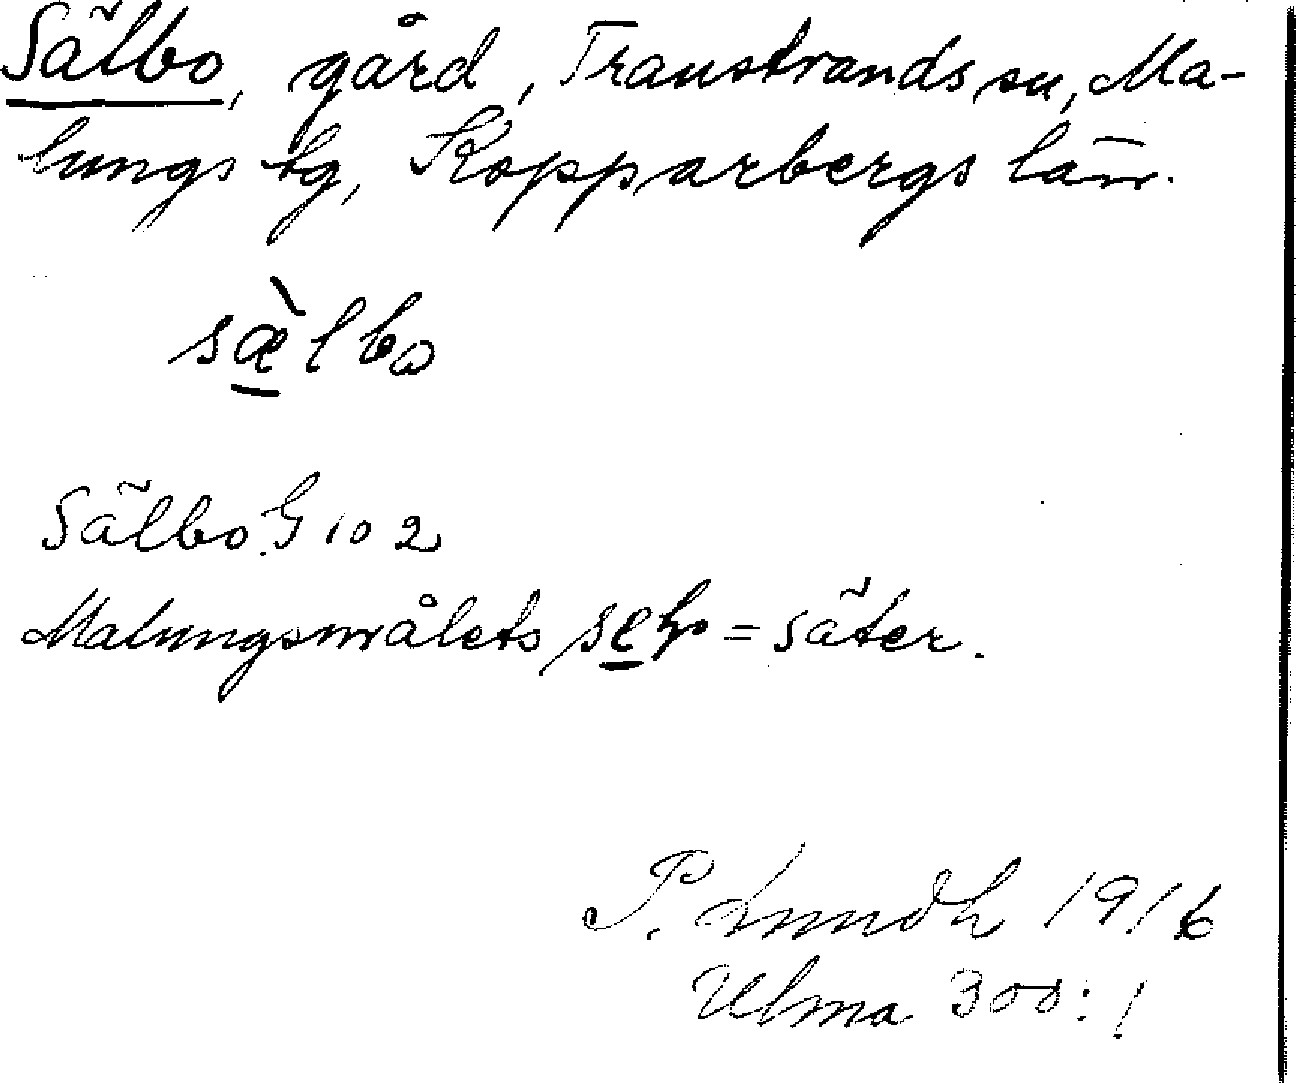 Sälbo, gård, Transtrands sn, Ma-
lungs tg, Kopparbergs län.
sæ̀lbo
Sälbo. G 102
Malungsmålets = säter.
P. Lundh 1916
Ulma 300:1